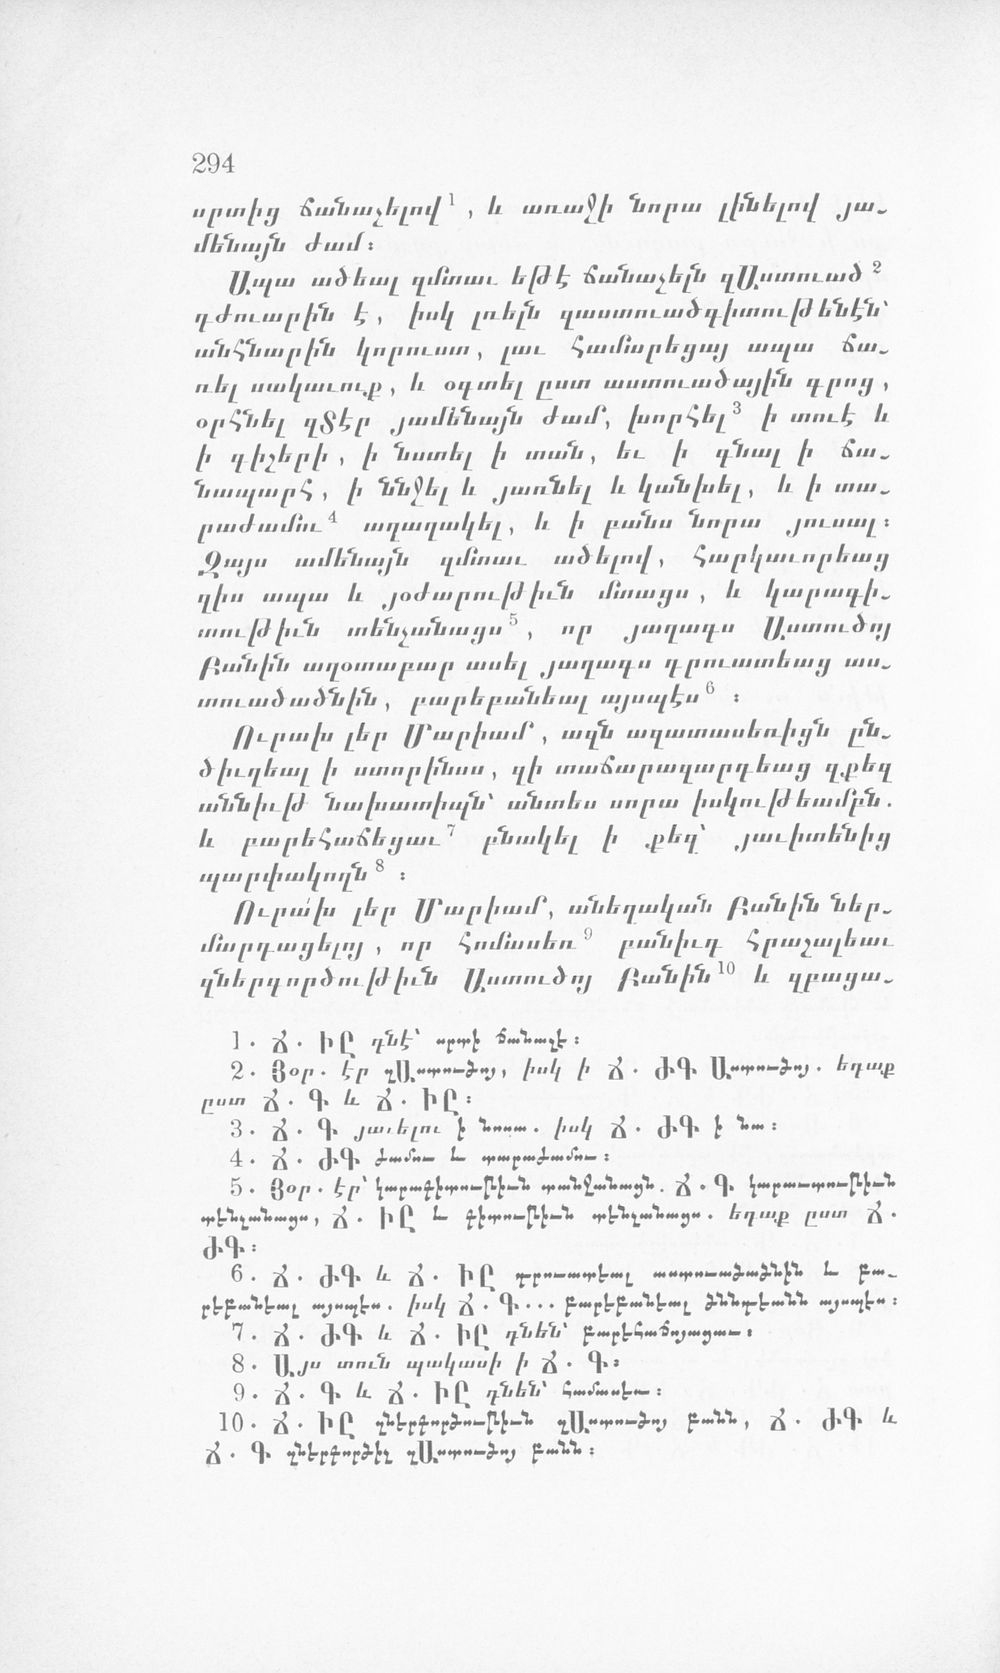 294
սրտից ճանաչելով 1 , և առաջի նորա լինելով յա֊
մենայն ժամ։
Ապա ածեալ զմտաւ եթէ ճանաչելն զԱստուած 2
դժուարին է, իսկ լռելն զաստուածգիտութենէն՝
անհնարին կորուստ, լաւ համարեցայ ապա ճա֊
ռել սակաւուք, և օգտել ըստ աստուածային գրոց,
օրհնել զՏէր յամենայն ժամ, խորհել 3 ի տուէ և
ի գիշերի, ի նստել ի տան, եւ ի գնալ ի ճա֊
նապարհ, ի ննջել և յառնել և կանխել, և ի տա֊
րաժամու 4 աղաղակել, և ի բանս նորա յուսալ։
Զայս ամենայն զմտաւ ածելով, հարկաւորեաց
զիս ապա և յօժարութիւն մտացս, և կարագի֊
տութիւն տենչանացս 5 , որ յաղագս Աստուծոյ
Բանին աղօտաբար ասել յաղագս գրուատեաց աս֊
տուածածնին, բարեբանեալ այսպէս 6 ։
Ուրախ լեր Մարիամ, ազն ազատասեռիցն ըն֊
ծիւղեալ ի ստորինսս, զի տաճարազարդեաց զքեզ
աննիւթ նախատիպն՝ անտես սորա իսկութեամբն.
և բարեհաճեցաւ 7 բնակել ի քեզ՝ յաւիտենից
պարփակողն 8 ։
Ուրա՛խ լեր Մարիամ, անեղական Բանին ներ֊
մարդացելոյ, որ հոմասեռ 9 բանիւդ հրաշալեաւ
զներգործութիւն Աստուծոյ Բանին 10 և զբացա֊
1. Ճ. ԻԸ դնէ՝ սրտի ճանաչէ։
2. Յօր. էր զԱստուծոյ, իսկ ի Ճ. ԺԳ Աստուծոյ. եդաք
ըստ Ճ. Գ և Ճ. ԻԸ։
3. Ճ. Գ յաւելու ի նոսա. իսկ Ճ. ԺԳ ի նա։
4. Ճ. ԺԳ ժամու և տարաժամու։
5. Յօր. էր՝ կարագիտութիւն տանջանացն. Ճ. Գ կարաւտութիւն
տենչանացս, Ճ. ԻԸ և գիտութիւն տենչանացս. եդաք ըստ Ճ.
ԺԳ։
6. Ճ. ԺԳ և Ճ. ԻԸ գրուատեալ աստուածածնին և բա֊
րեբանեալ այսպէս. իսկ Ճ. Գ... բարեբանեալ ծննդեանն այսպէս։
7. Ճ. ԺԳ և Ճ. ԻԸ դնեն՝ բարեհաճոյացաւ։
8. Այս տուն պակասի ի Ճ. Գ։
9. Ճ. Գ և Ճ. ԻԸ դնեն՝ համասեռ։
10. Ճ. ԻԸ զներգործութիւն զԱստուծոյ բանն, Ճ. ԺԳ և
Ճ. Գ զներգործիչ զԱստուծոյ բանն։